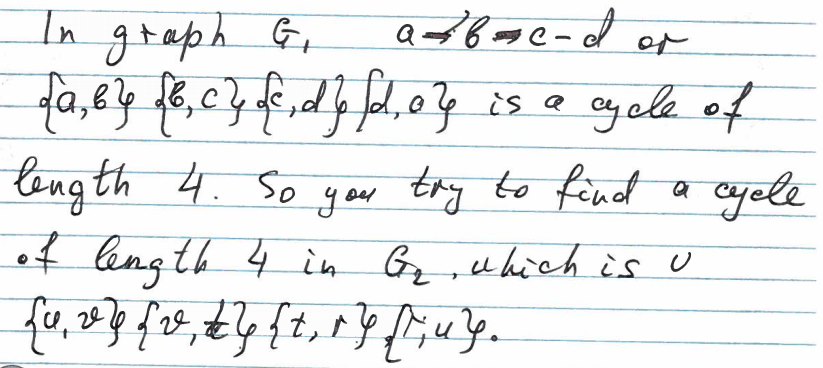 In graph G₁ a-b-c-d or
{a,b} {b,c} {c,d} {d,a} is a cycle of
length 4. So you try to find a cycle
of length 4 in G₂, which is
{u,v} {v,t} {t,r} {r,u}.